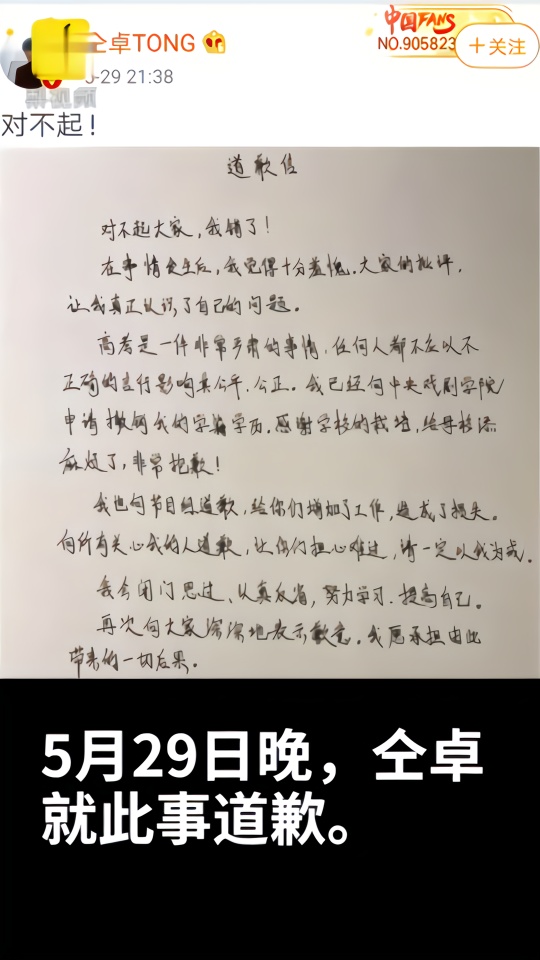 中国FANS
NO.905823
仝卓TONG
+关注
5-29 21:38
对不起!
道歉信
对不起大家,我错了!
在事情发生后,我觉得十分羞愧.大家的批评,
让我真正认识了自己的问题。
高考是一件非常严肃的事情,任何人都不应以不
正确的言行影响其公平、公正。我已经向中央戏剧学院
申请撤销我的学籍学历.感谢学校的栽培,给母校添
麻烦了,非常抱歉!
我也向节目组道歉,给你们增加了工作,造成了损失。
向所有关心我的人道歉,让你们担心难过,请一定以我为戒.
我会闭门思过、认真反省,努力学习.提高自己。
再次向大家深深地表示歉意.我愿承担由此
带来的一切后果.
5月29日晚,仝卓
就此事道歉。